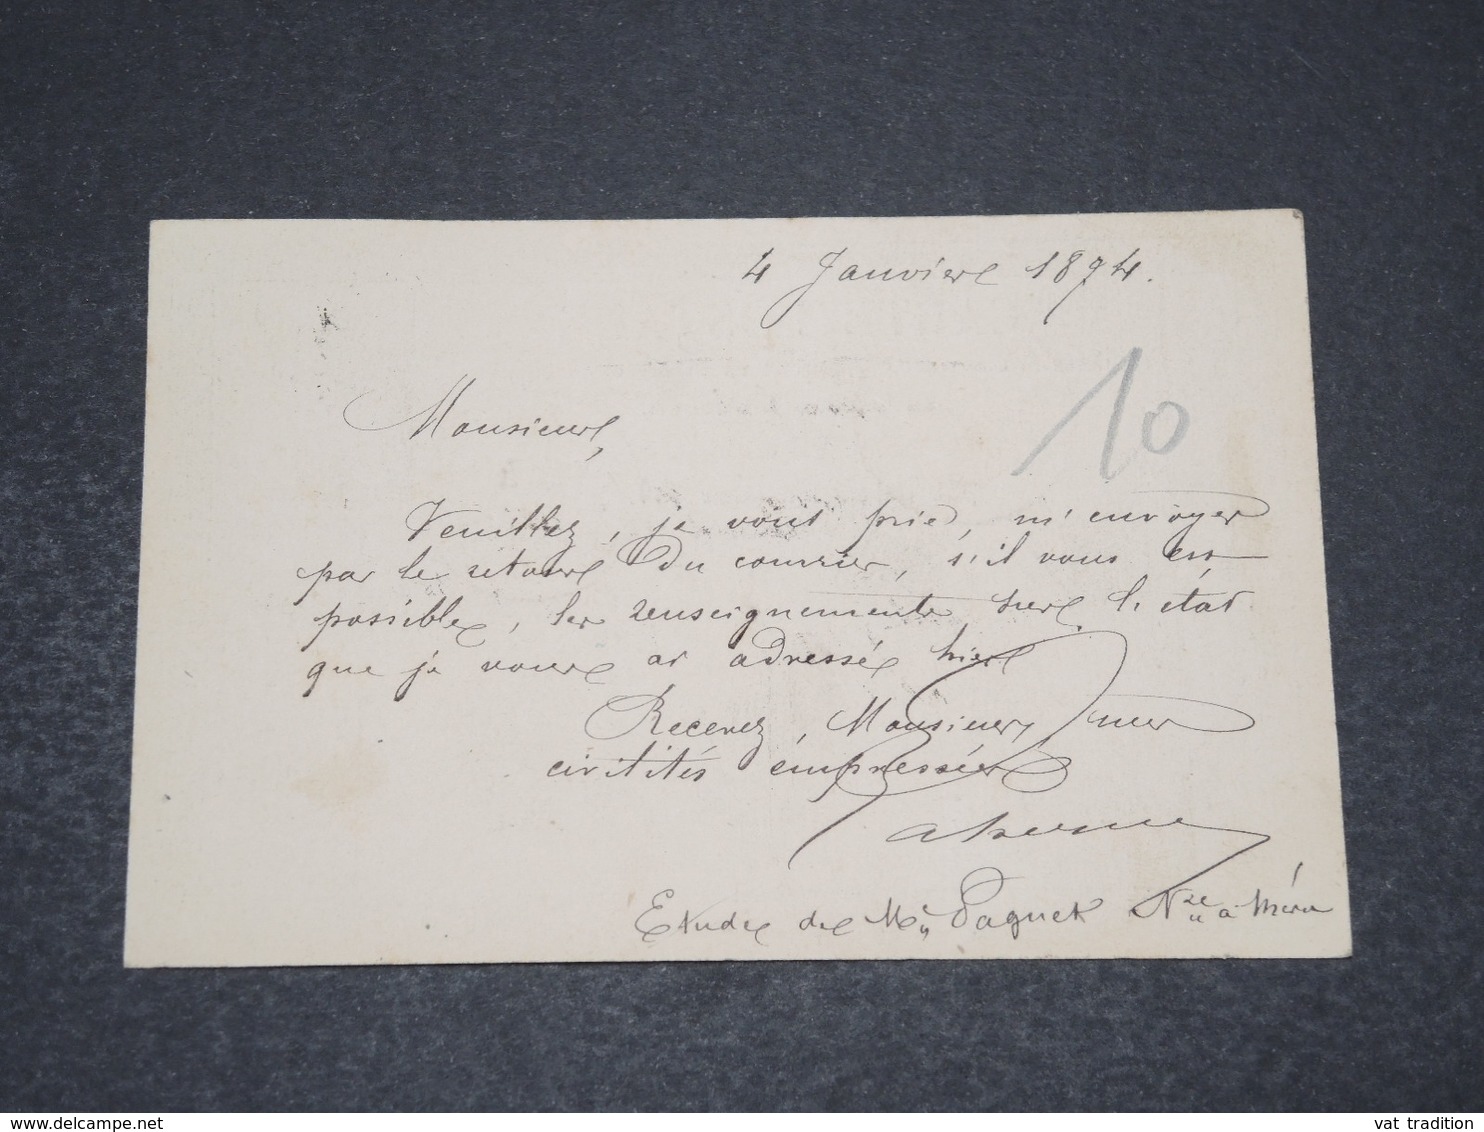 4 Janvier 1874.
10
Monsieur,
Veuillez, je vous prie, m'envoyer
par le retour du courrier, s'il vous est
possible, les renseignements sur l'état
que je vous ai adressé hier
Recevez, Monsieur, mes
civilités empressées
Etude de Me Paquet Nre à Méru
delcampe.net
vat tradition